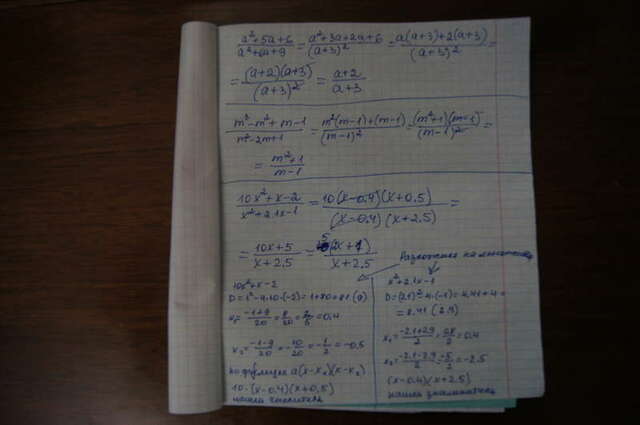 (a²+5a+6)/(a²+6a+9) = (a²+3a+2a+6)/(a+3)² = (a(a+3)+2(a+3))/(a+3)² =
= (a+2)(a+3)/(a+3)² = (a+2)/(a+3)
(m³-m²+m-1)/(m²-2m+1) = (m²(m-1)+(m-1))/(m-1)² = (m²+1)(m-1)/(m-1)² =
= (m²+1)/(m-1)
(10x²+x-2)/(x²+2.1x-1) = 10(x-0.4)(x+0.5)/(x-0.4)(x+2.5) =
= (10x+5)/(x+2.5) = 5(2x+1)/(x+2.5)
Разложение на множители
10x²+x-2
D=1²-4·10·(-2)=1+80=81(9)
x₁=(-1+9)/20=8/20=2/5=0,4
x₂=(-1-9)/20=-10/20=-1/2=-0,5
по формуле a(x-x₁)(x-x₂)
10·(x-0.4)(x+0,5)
нашли числитель
x²+2.1x-1
D=(2.1)²-4·(-1)=4.41+4=
=8.41(2.9)
x₁=(-2.1+2.9)/2=0.8/2=0.4
x₂=(-2.1-2.9)/2=-5/2=-2.5
(x-0.4)(x+2.5)
нашли знаменатель